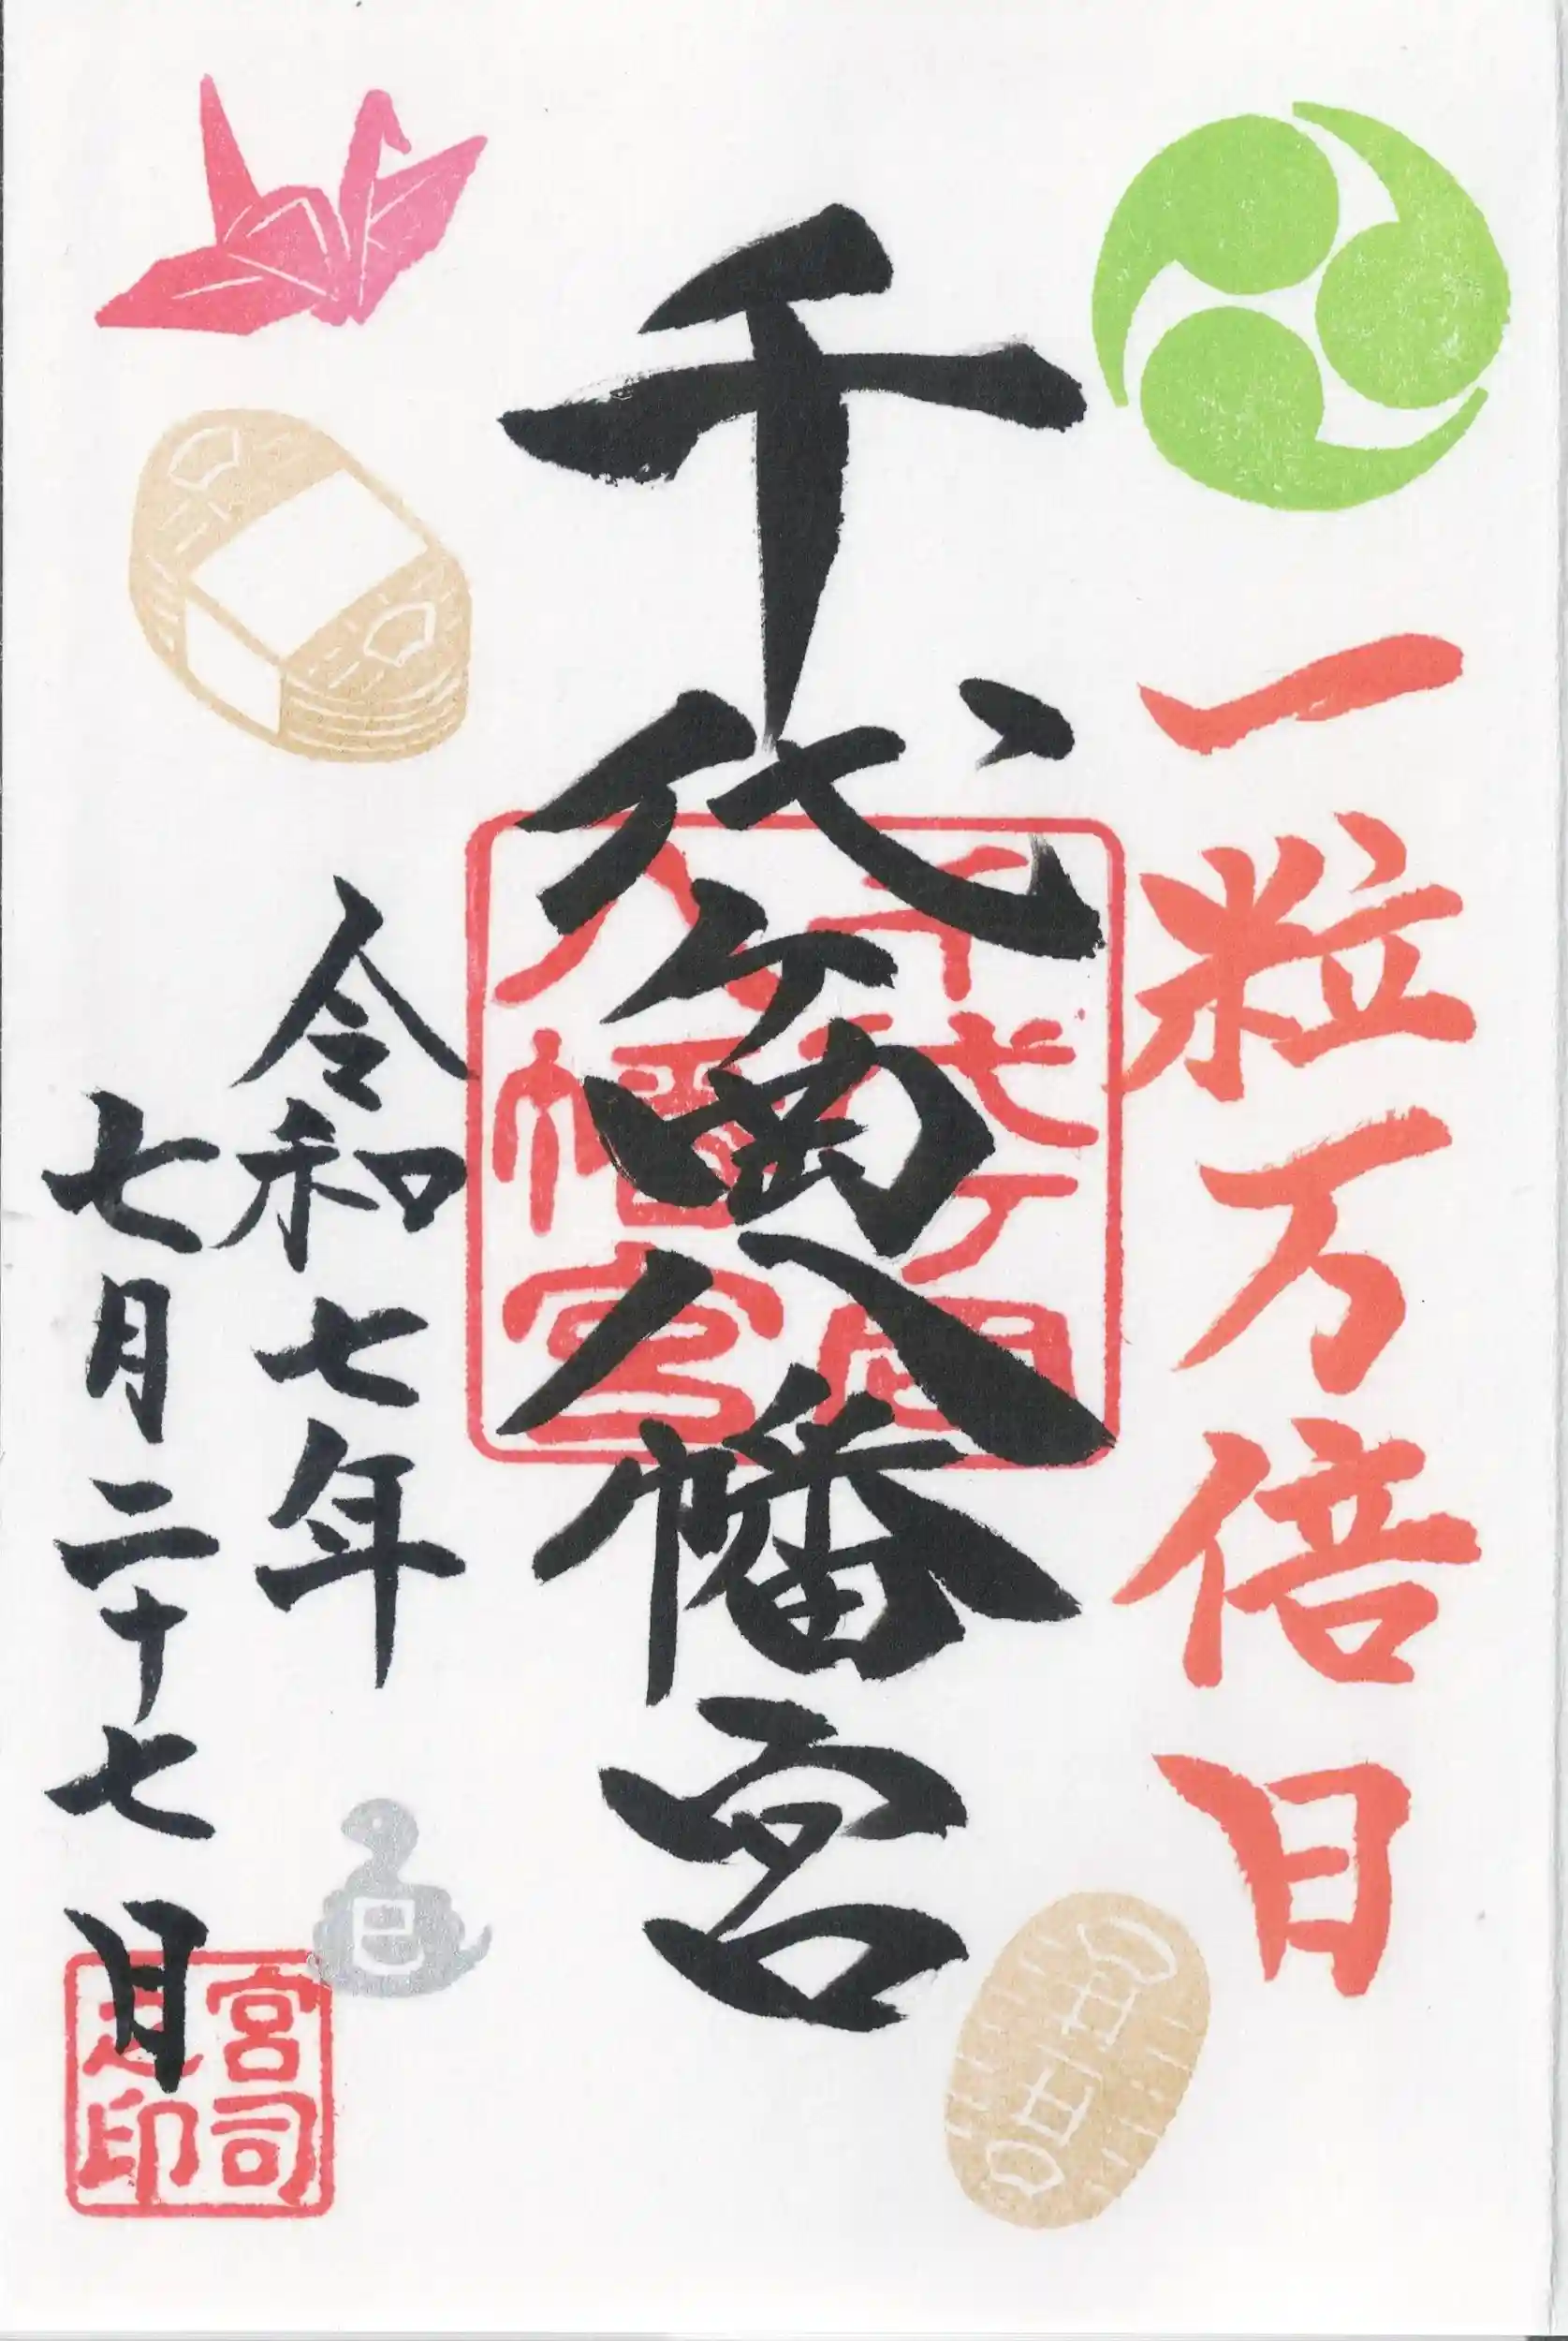 一粒万倍日
千代ケ岡八幡宮
千代ケ岡
八幡宮
令和七年
七月二十七日
巳
宮司
之印